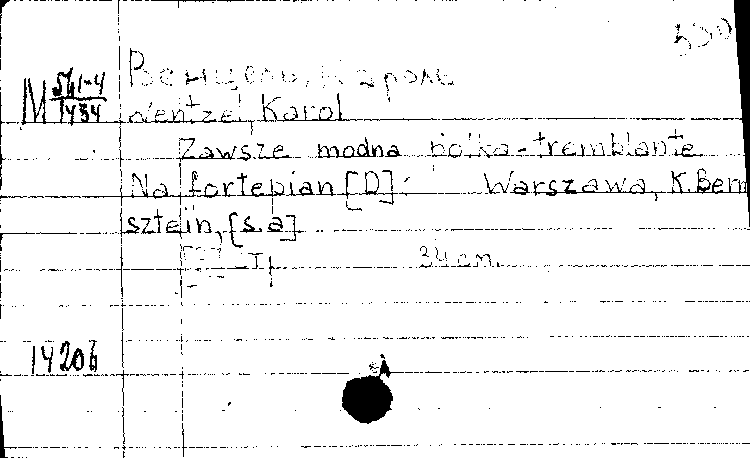 550
M 541-4/1434
Венцель, Кароль
Wentzel, Karol
Zawsze modna polka-tremblante
Na fortepian [D]: Warszawa, K. Bern
sztein, [s.a]
34 cm.
14206